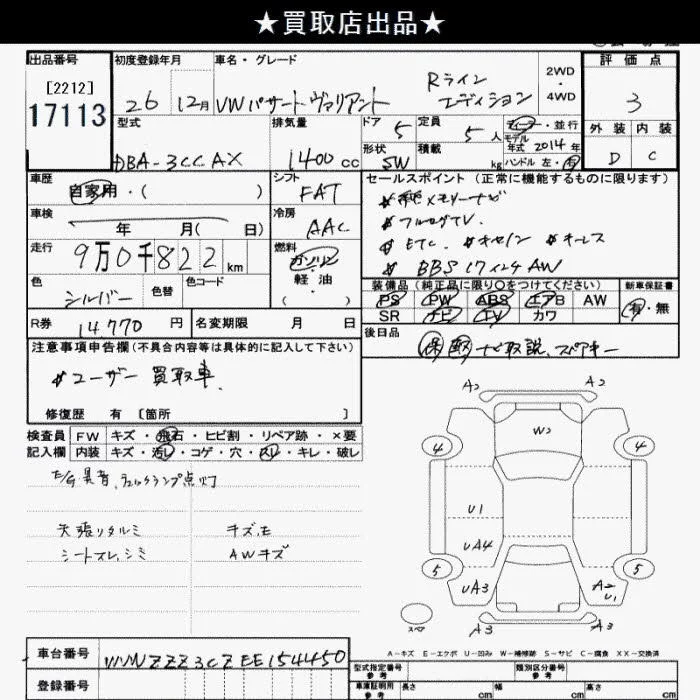 ★買取店出品★
出品番号 初度登録年月 車名・グレード 2WD・4WD 評価点
[2212]
17113
26年 12月 VWパサートヴァリアント Rラインエディション
3
型式 排気量 ドア 定員 ディーラー・並行
DBA-3CCAX 1400cc 5 5人 モデル年式 2014年
形状 積載 kg ハンドル 左・右
SW
外装 内装
D C
車歴 自家用・( ) シフト FAT
車検 年 月( 日) 冷房 AAC
走行 9万0千822km 燃料 ガソリン・軽油・( )
色 シルバー 色替 色コード
R券 14770円 名変期限 月 日
セールスポイント (正常に機能するものに限ります)
メモリーナビ
フルセグTV.
ETC. キーレス
BBS 17インチAW
装備品(純正品に限り○をつけてください) 新車保証書
PS PW ABS エアB AW 有・無
SR ナビ TV カワ
後日品
保 取説、スペアキー
注意事項申告欄(不具合内容等は具体的に記入して下さい)
ユーザー買取車
修復歴 有 [箇所 ]
検査員 FW キズ・飛石・ヒビ割・リペア跡・×要
記入欄 内装 キズ・汚レ・コゲ・穴・スレ・キレ・破レ
異音、チェックランプ点灯
天張りタルミ キズ、モ
シートスレ、シミ AWキズ
A2 A2
W2
4 4
U1
UA4
5 5
UA3 A2 U1
A3 A3
スペア
A-キズ E-エクボ U-凹み W-補修跡 S-サビ C-腐食 XX-交換済
車台番号 WVWZZZ3CZEE154450
登録番号
型式指定番号 参考 類別区分番号 参考
車庫証明用 参考 長さ cm 幅 cm 高さ cm